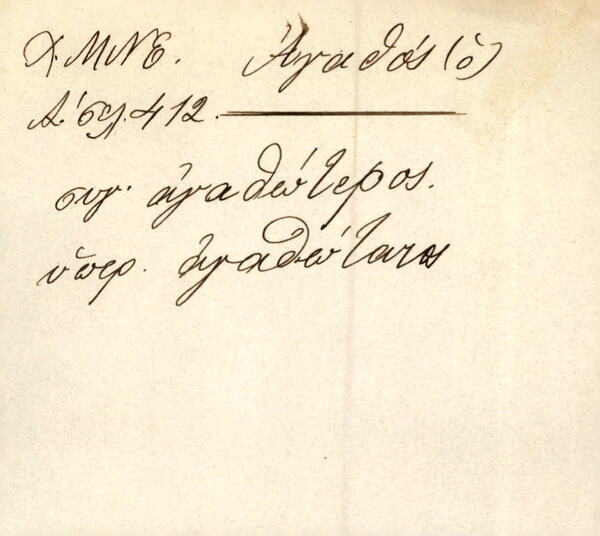 Χ. ΜΝΕ. Ἀγαθός (ὁ)
Α' σελ. 412.
συγ. ἀγαθώτερος.
ὑπερ. ἀγαθώτατος